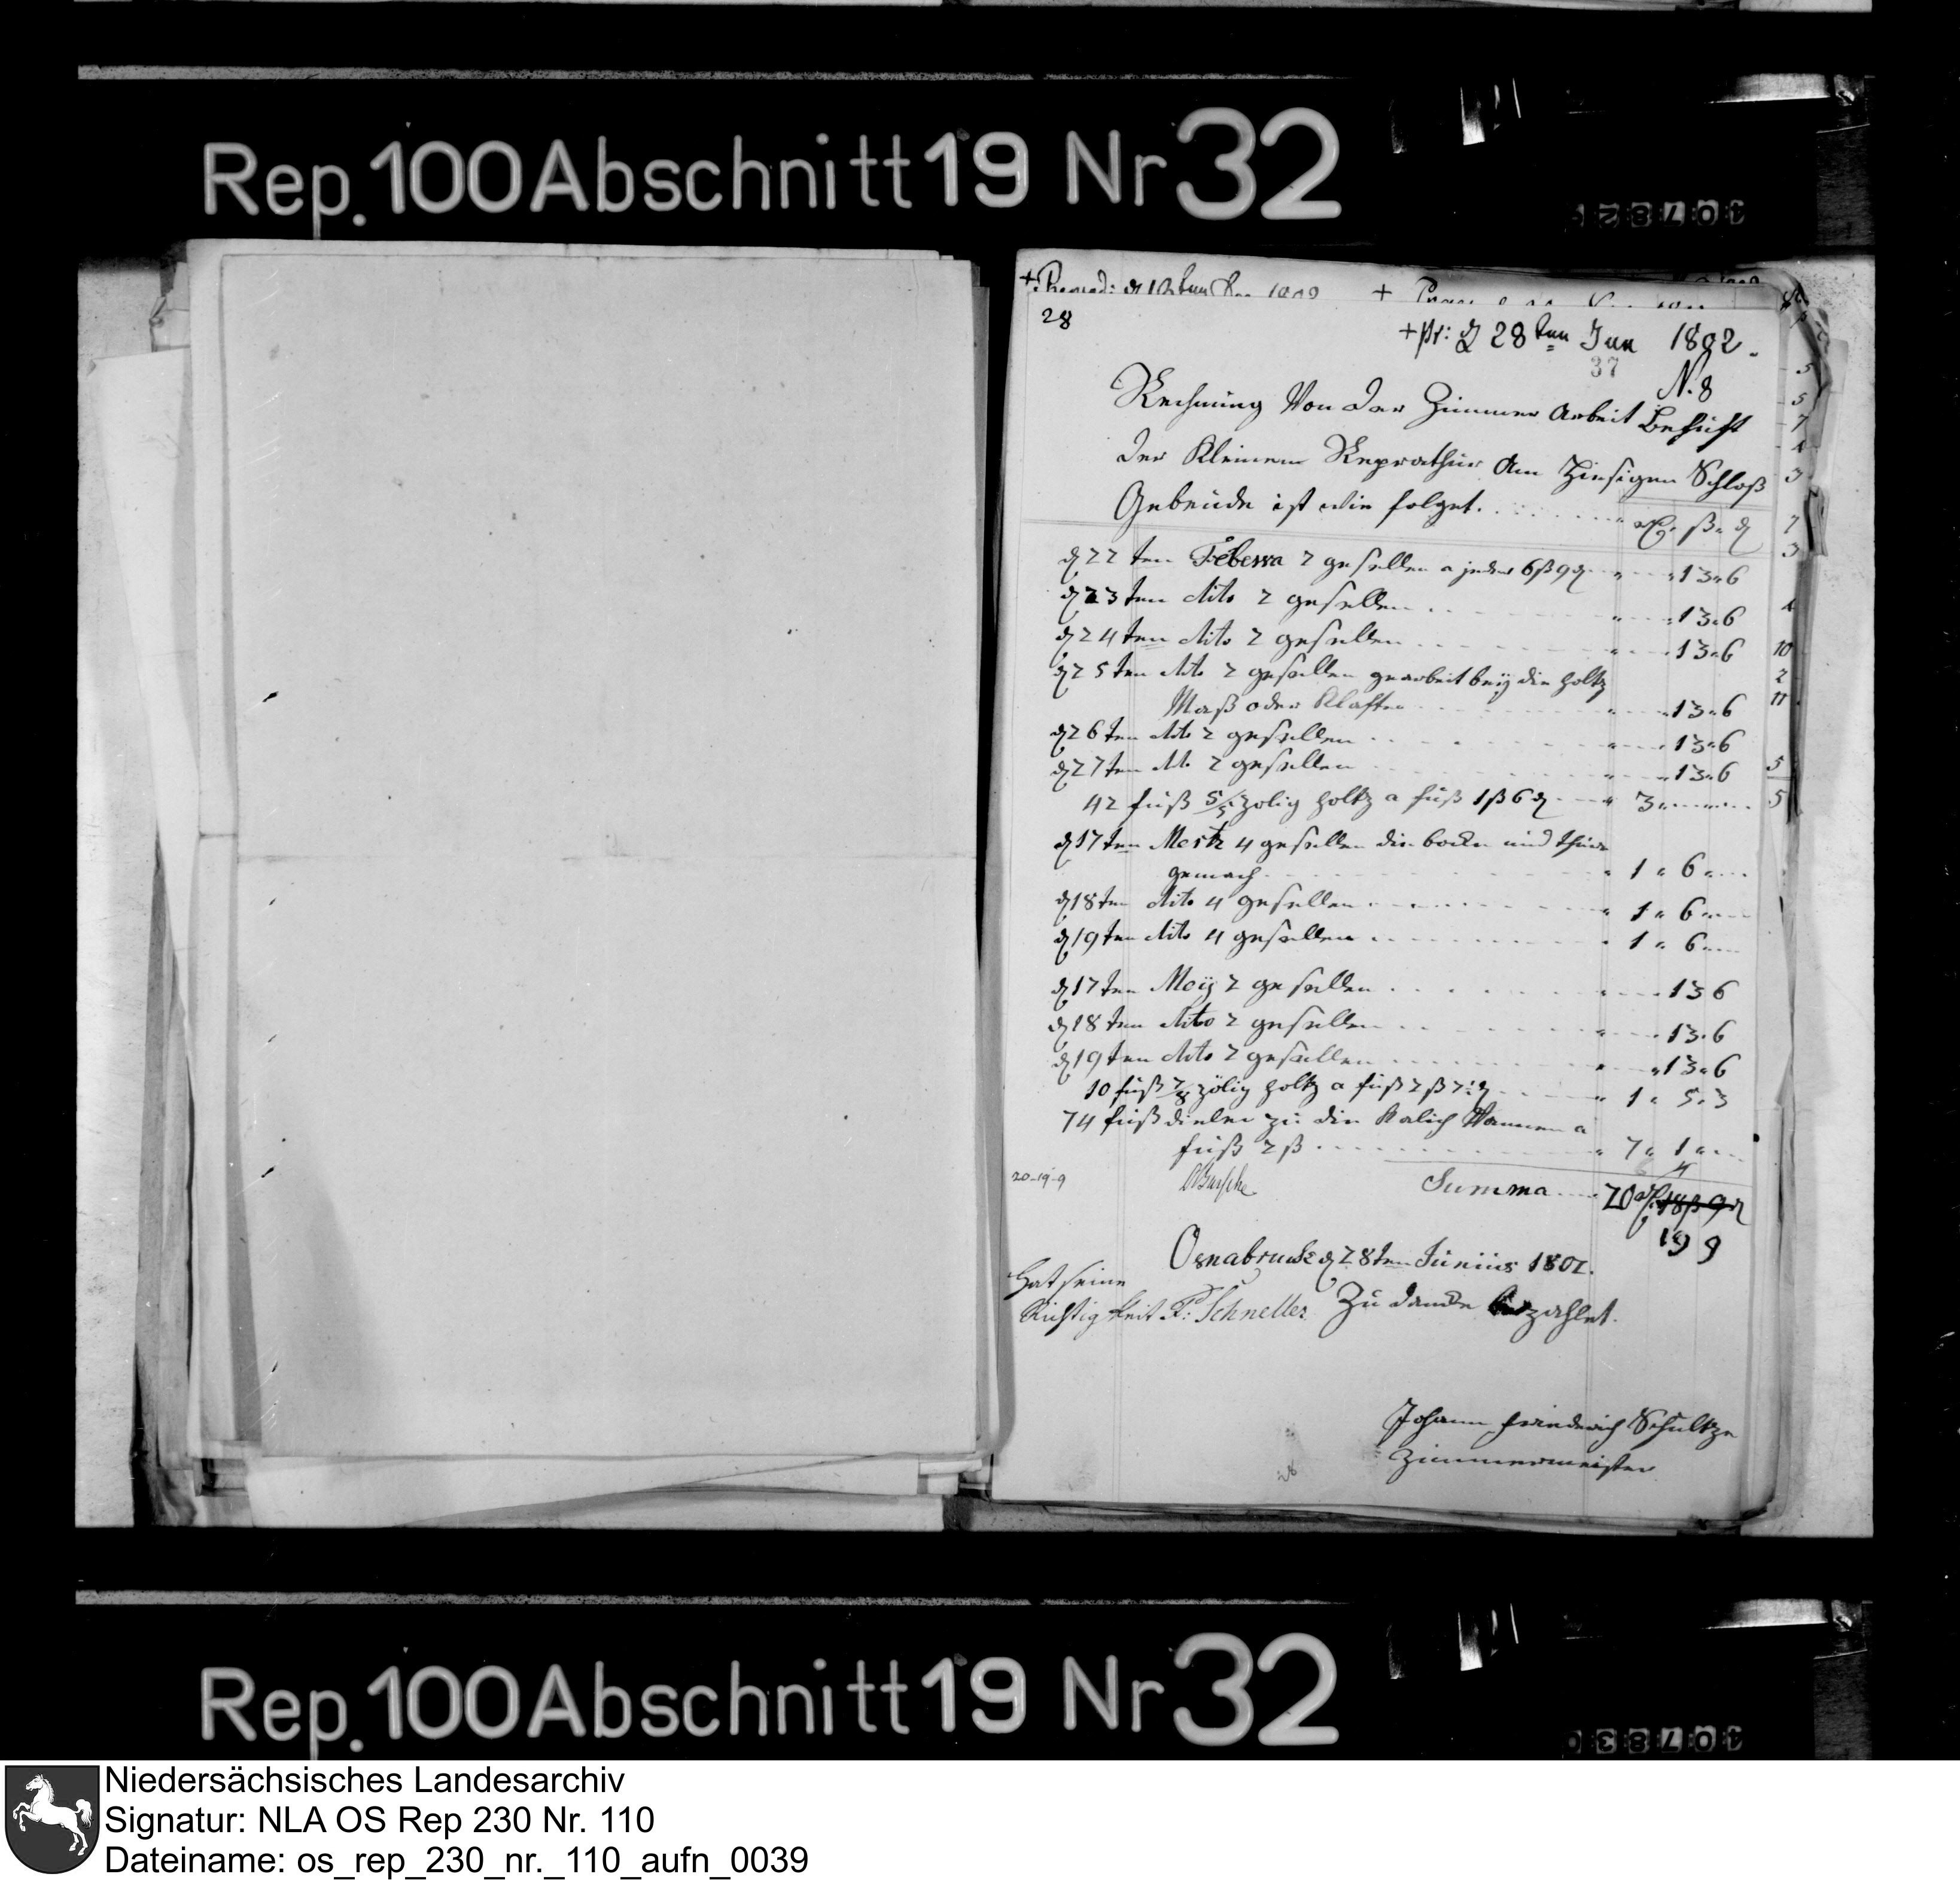 Rep. 100 Abschnitt 19 Nr 32
28
+ pr: d 28ten Jun 1802.
37
N. 8
Rechnung Von der Zimmer arbeit Besicht
der Kleinem Reprathür Am Hiesigen Schloß
Gebeüde ist wie folget.
rt. ß. d
d 22 ten Feberra 2 gesellen a jeder 6 ß 9 d 13 6
d 23 ten dito 2 gesellen 13 6
d 24 ten dito 2 gesellen 13 6
d 25 ten dito 2 gesellen gearbeit beÿ die holtz
Maß oder Klafter 13 6
d 26 ten dito 2 gesellen 13 6
d 27 ten dito 2 gesellen 13 6
42 fuß 5/5 zolig holtz a fuß 1 ß 6 d 3
d 17 ten Mertz 4 gesellen die und
gemach 1 6
d 18 ten dito 4 gesellen 1 6
d 19 ten dito 4 gesellen 1 6
d 17 ten Meÿ 2 gesellen 13 6
d 18 ten dito 2 gesellen 13 6
d 19 ten dito 2 gesellen 13 6
10 fuß 7/8 zölig holtz a fuß 2 ß 1 5 3
74 fuß dielen zu die Kalich Wannen a
fuß 2 ß 7 1
20-19-9
Summa 20 rt 18 ß 9 d
19 9
Osnabruck d 28ten Junius 1802.
Hat seine
Richtigkeit Schneller
Zu danck bezahlet.
Johann friederich Schultze
Zimmermeister
Rep. 100 Abschnitt 19 Nr 32
Niedersächsisches Landesarchiv
Signatur: NLA OS Rep 230 Nr. 110
Dateiname: os_rep_230_nr._110_aufn_0039